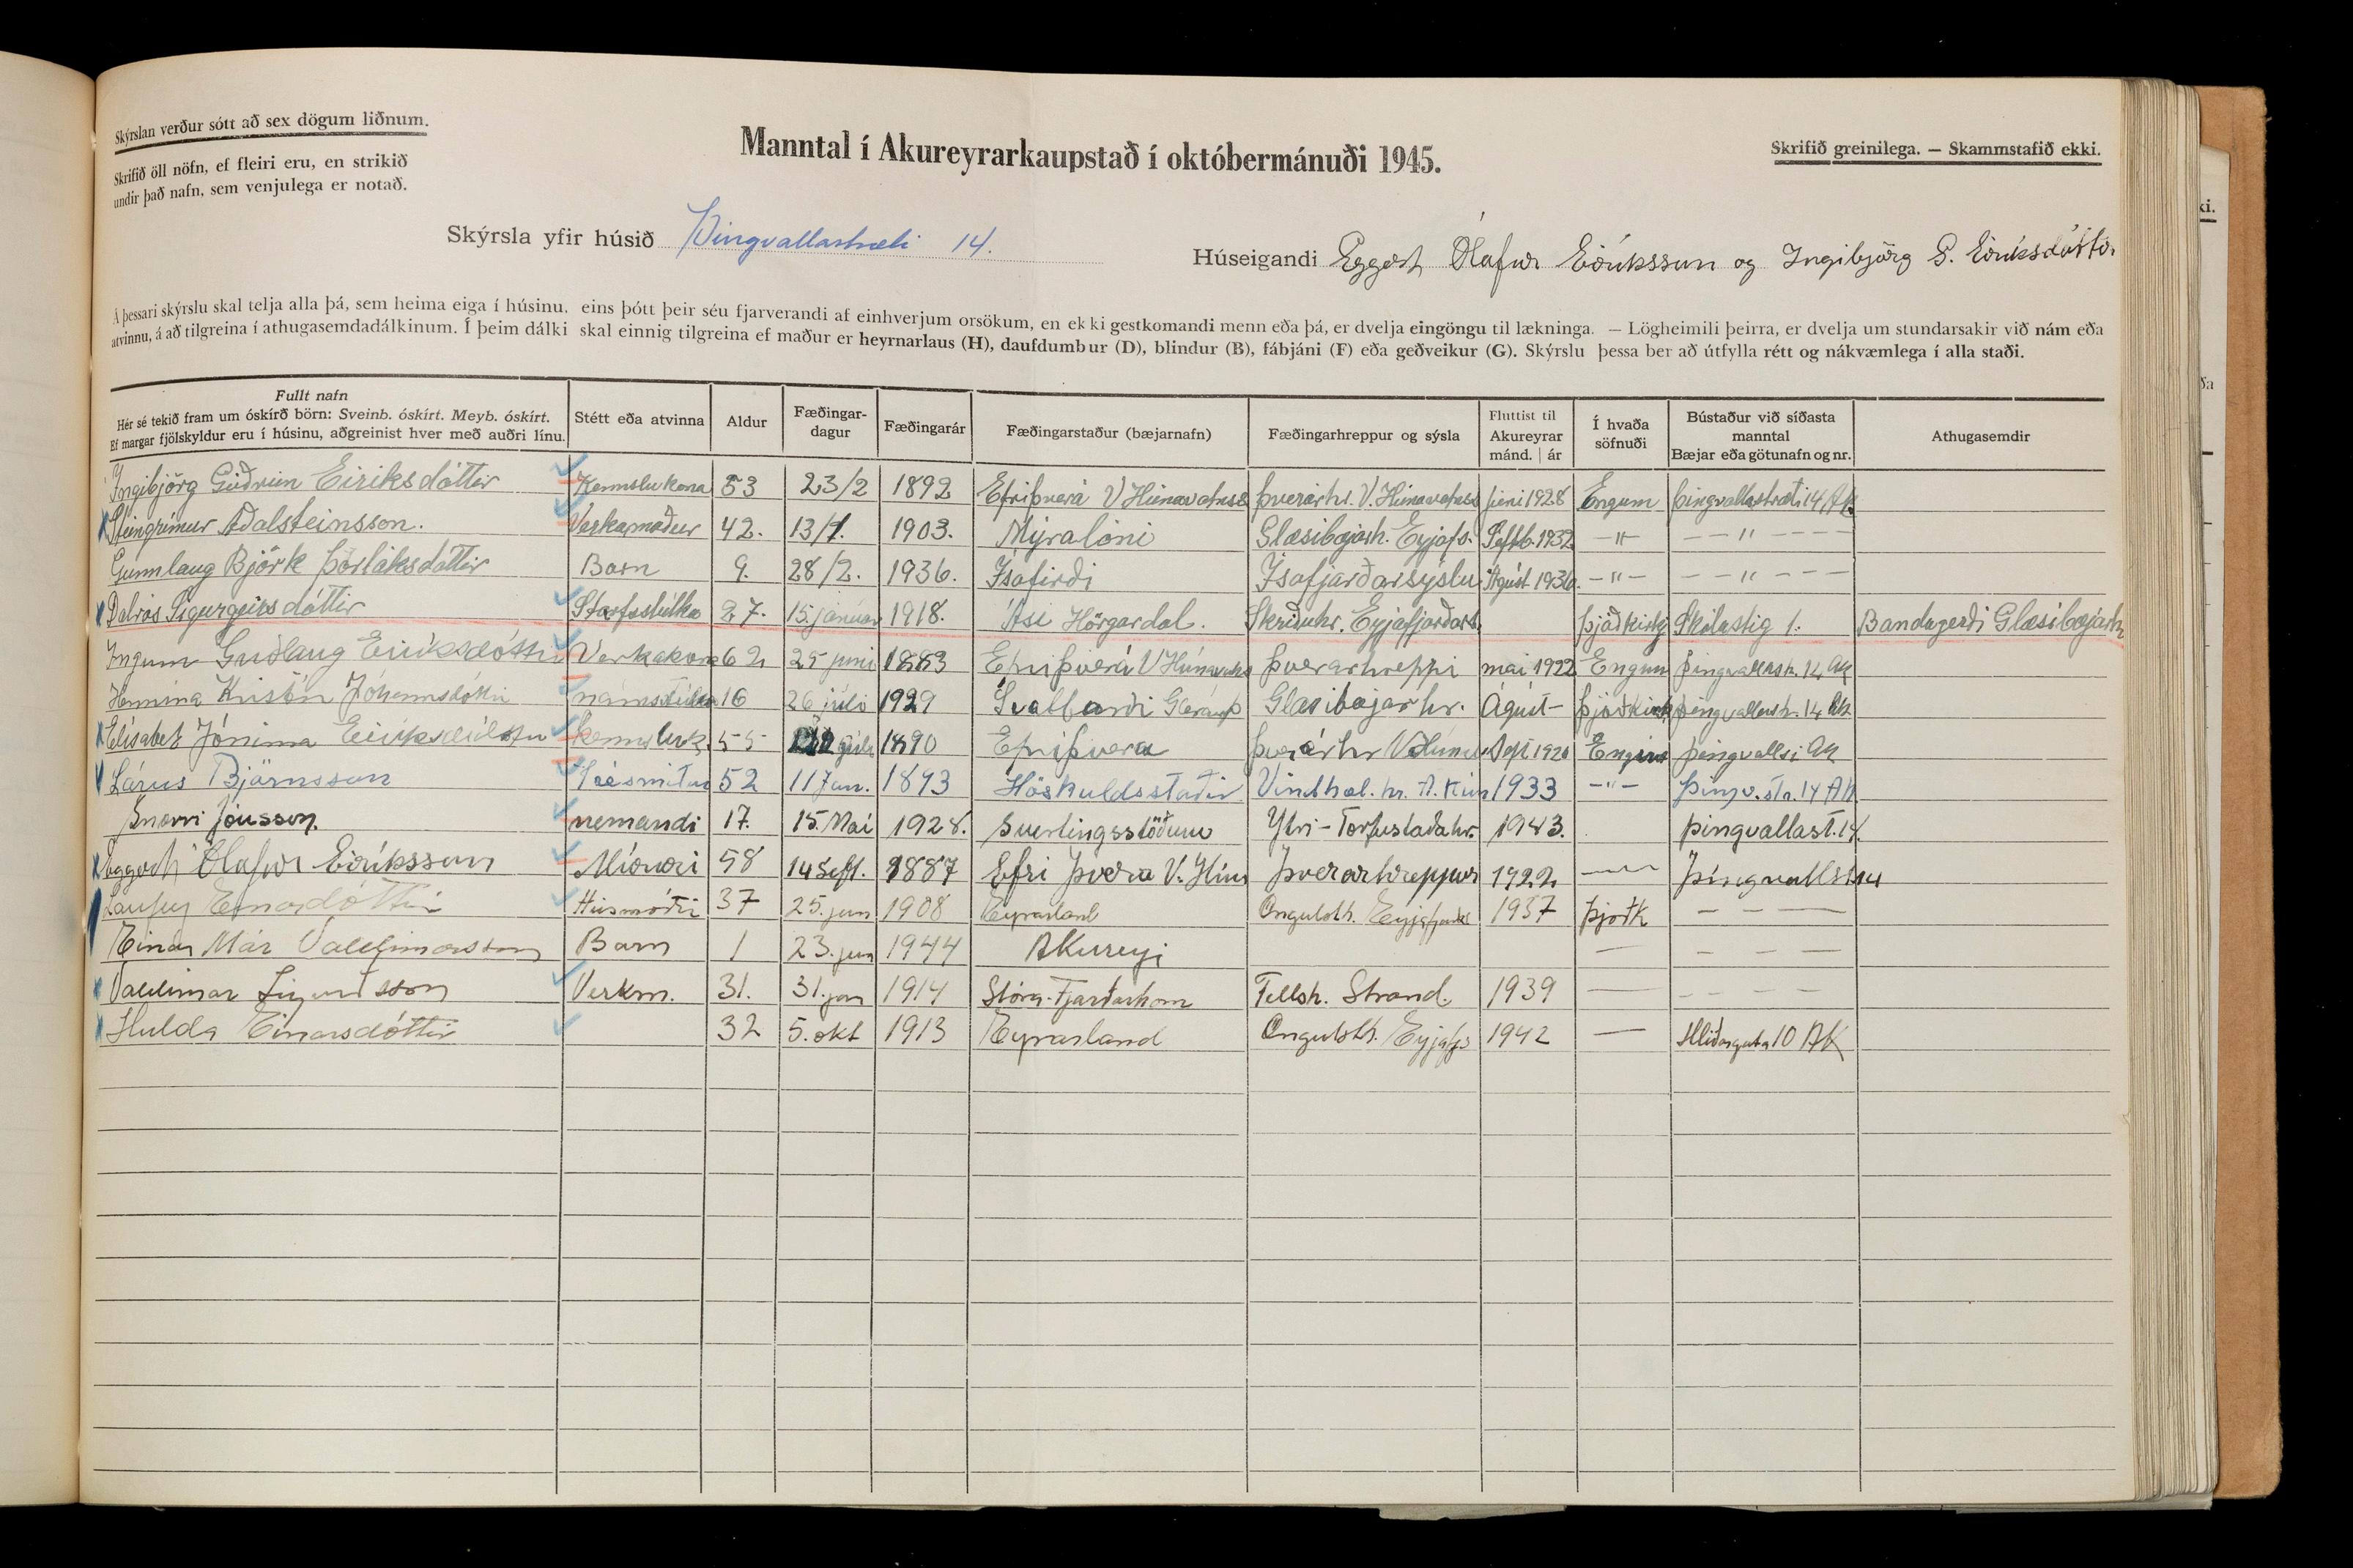 Skýrslan verður sótt að sex dögum liðnum.
Skrifið öll nöfn, ef fleiri eru, en strikið
undir það nafn, sem venjulega er notað.
Manntal í Akureyrarkaupstað í októbermánuði 1945.
Skrifið greinilega. — Skammstafið ekki.
Skýrsla yfir húsið Þingvallastræti 14.
Húseigandi Eggert Ólafur Eiríksson og Ingibjörg G. Eiríksdóttir
Á þessari skýrslu skal telja alla þá, sem heima eiga í húsinu, eins þótt þeir séu fjarverandi af einhverjum orsökum, en ekki gestkomandi menn eða þá, er dvelja eingöngu til lækninga. — Lögheimili þeirra, er dvelja um stundarsakir við nám eða
atvinnu, á að tilgreina í athugasemdadálkinum. Í þeim dálki skal einnig tilgreina ef maður er heyrnarlaus (H), daufdumbur (D), blindur (B), fábjáni (F) eða geðveikur (G). Skýrslu þessa ber að útfylla rétt og nákvæmlega í alla staði.
Fullt nafn
Hér sé tekið fram um óskírð börn: Sveinb. óskírt. Meyb. óskírt.
Ef margar fjölskyldur eru í húsinu, aðgreinist hver með auðri línu.
Stétt eða atvinna
Aldur
Fæðingar-
dagur
Fæðingarár
Fæðingarstaður (bæjarnafn)
Fæðingarhreppur og sýsla
Fluttist til
Akureyrar
mánd. | ár
Í hvaða
söfnuði
Bústaður við síðasta
manntal
Bæjar eða götunafn og nr.
Athugasemdir
Ingibjörg Guðrún Eiríksdóttir Kennslukona 53 23/2 1892 Efriþverá V Húnavatnss Þverárhr. V. Húnavatnss júni 1928 Engum Þingvallastræti 14 Ak.
Steingrímur Aðalsteinsson. Verkamaður 42. 13/1. 1903. Mýralóni Glæsibæjarh. Eyjafs. Septb. 1932 –"– – – " – – –
Gunnlaug Björk Þorláksdóttir Barn 9. 28/2. 1936. Ísafirði Ísafjarðarsýslu Ágúst 1936. –"– – – " – – –
Dalrós Sigurgeirsdóttir Starfsstúlka 27. 15. janúar 1918. Ási Hörgardal. Skriðuhr. Eyjafjarðars. Þjóðkirkj Skólastig 1. Bandagerði Glæsibæjarh
Ingunn Guðlaug Eiríksdóttir Verkakona 62 25 júni 1883 Efriþverá V Húnavatns Þverarhreppi mai 1922 Engum Þingvallastr. 14 Ak
Hermína Kristín Jóhannsdóttir námsstúlka 16 26 júlí 1929 Svalbarði Gleráþ Glæsibæjarhr. Ágúst – Þjóðkirk Þingvallastr. 14 Ak
Elísabet Jónína Eiríksdóttir kennsluk. 55 júlí 1890 Efriþvera Þverárhr V Húna Sept 1920 Engin Þingvallst Ak
Lárus Björnsson Trésmiður 52 11 Jan. 1893 Höskuldsstaðir Vindhæl. hr. A. Hún 1933 –"– Þingv.str. 14 AK
Snorri Jónsson. nemandi 17. 15. Maí 1928. Sverlingsstöðum Ytri-Torfustaðahr. 1943. Þingvallast. 14.
Eggert Ólafur Eiríksson Múrari 58 14 Sept. 1887 Efri Þvera V. Hún Þverarhreppur 1922 — Þingvallstr 14
Laufey Einarsdóttir Húsmóðir 37 25. jun 1908 Eyrarland Öngulsth. Eyjafjarðs 1937 Þjóðk – – –
Einar Már Valdimarsson Barn 1 23. jun 1944 Akureyri — – – –
Valdimar Sigurðsson Verkm. 31. 31. jan 1914 Stóra-Fjarðarhorn Fellsh. Strand. 1939 — – – – –
Hulda Einarsdóttir 32 5. okt 1913 Eyrarland Öngulsth. Eyjafjs 1942 — Hlíðargata 10 AK